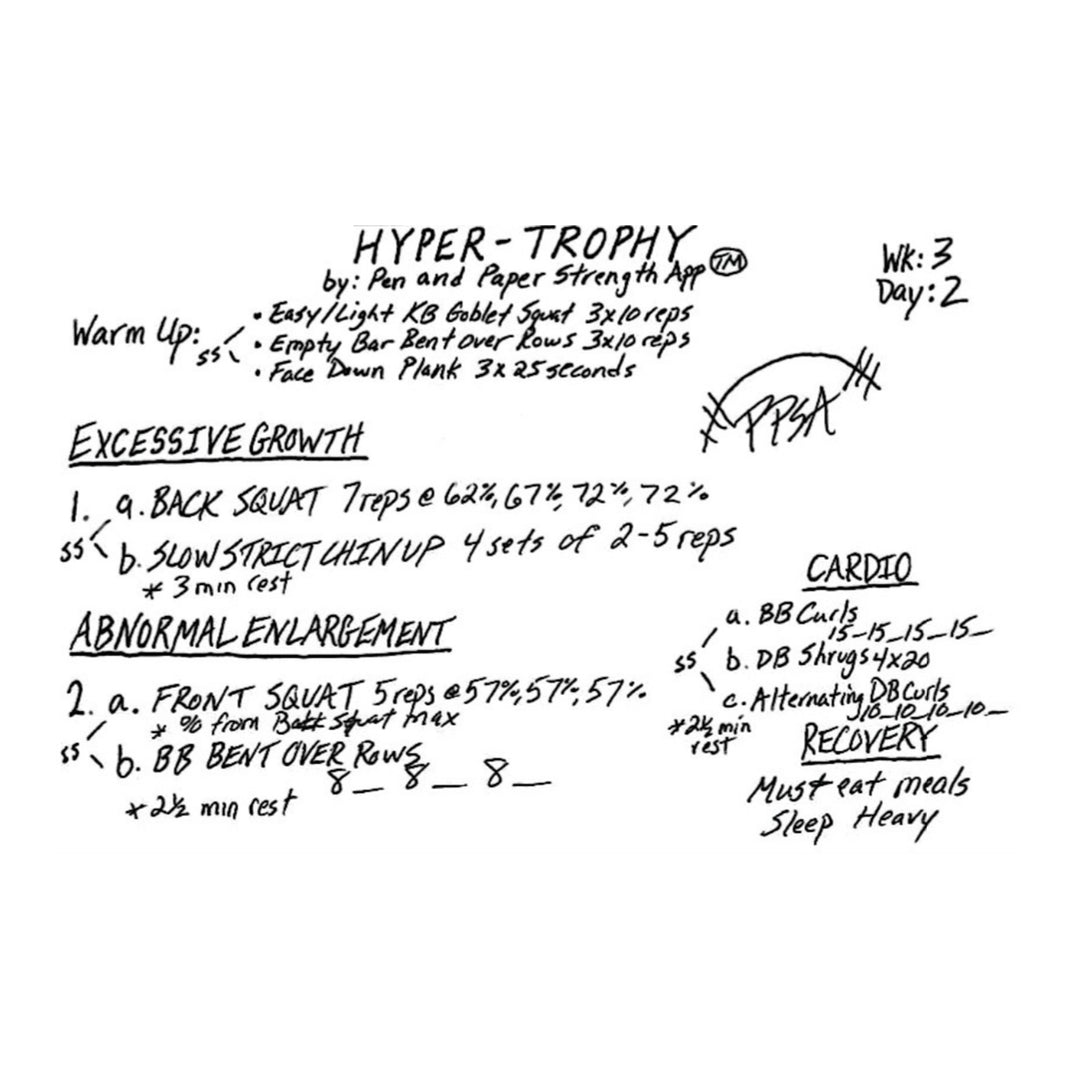 HYPER-TROPHY
by: Pen and Paper Strength App TM
Wk: 3
Day: 2
Warm Up:
ss
• Easy/Light KB Goblet Squat 3x10 reps
• Empty Bar Bent over Rows 3x10 reps
• Face Down Plank 3x25 seconds
PPSA
EXCESSIVE GROWTH
1. a. BACK SQUAT 7reps @ 62%, 67%, 72%, 72%
ss b. SLOW STRICT CHIN UP 4 sets of 2-5 reps
* 3 min rest
ABNORMAL ENLARGEMENT
2. a. FRONT SQUAT 5reps @ 57%, 57%, 57%
* % from Back Squat max
ss b. BB BENT OVER Rows
8_ 8_ 8_
* 2½ min rest
CARDIO
a. BB Curls
15_15_15_15_
ss b. DB Shrugs 4x20
c. Alternating DB Curls
10_10_10_10_
* 2½ min
rest
RECOVERY
Must eat meals
Sleep Heavy